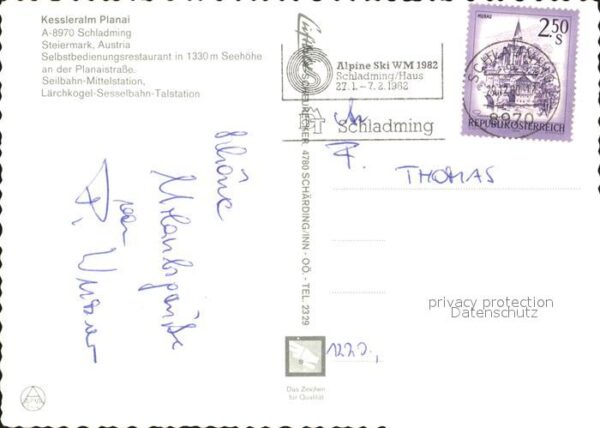 Kessleralm Planai
A-8970 Schladming
Steiermark, Austria
Selbstbedienungsrestaurant in 1330 m Seehöhe
an der Planaistraße.
Seilbahn-Mittelstation,
Lärchkogel-Sesselbahn-Talstation
Alpine Ski WM 1982
Schladming/Haus
27.1. – 7.2.1982
Schladming
MURAU
2.50
S
8970
REPUBLIK ÖSTERREICH
4780 SCHÄRDING/INN - OÖ. - TEL. 2329
F. THOMAS
Schöne
Urlaubsgrüße
von
privacy protection
Datenschutz
1220,
Das Zeichen
für Qualität